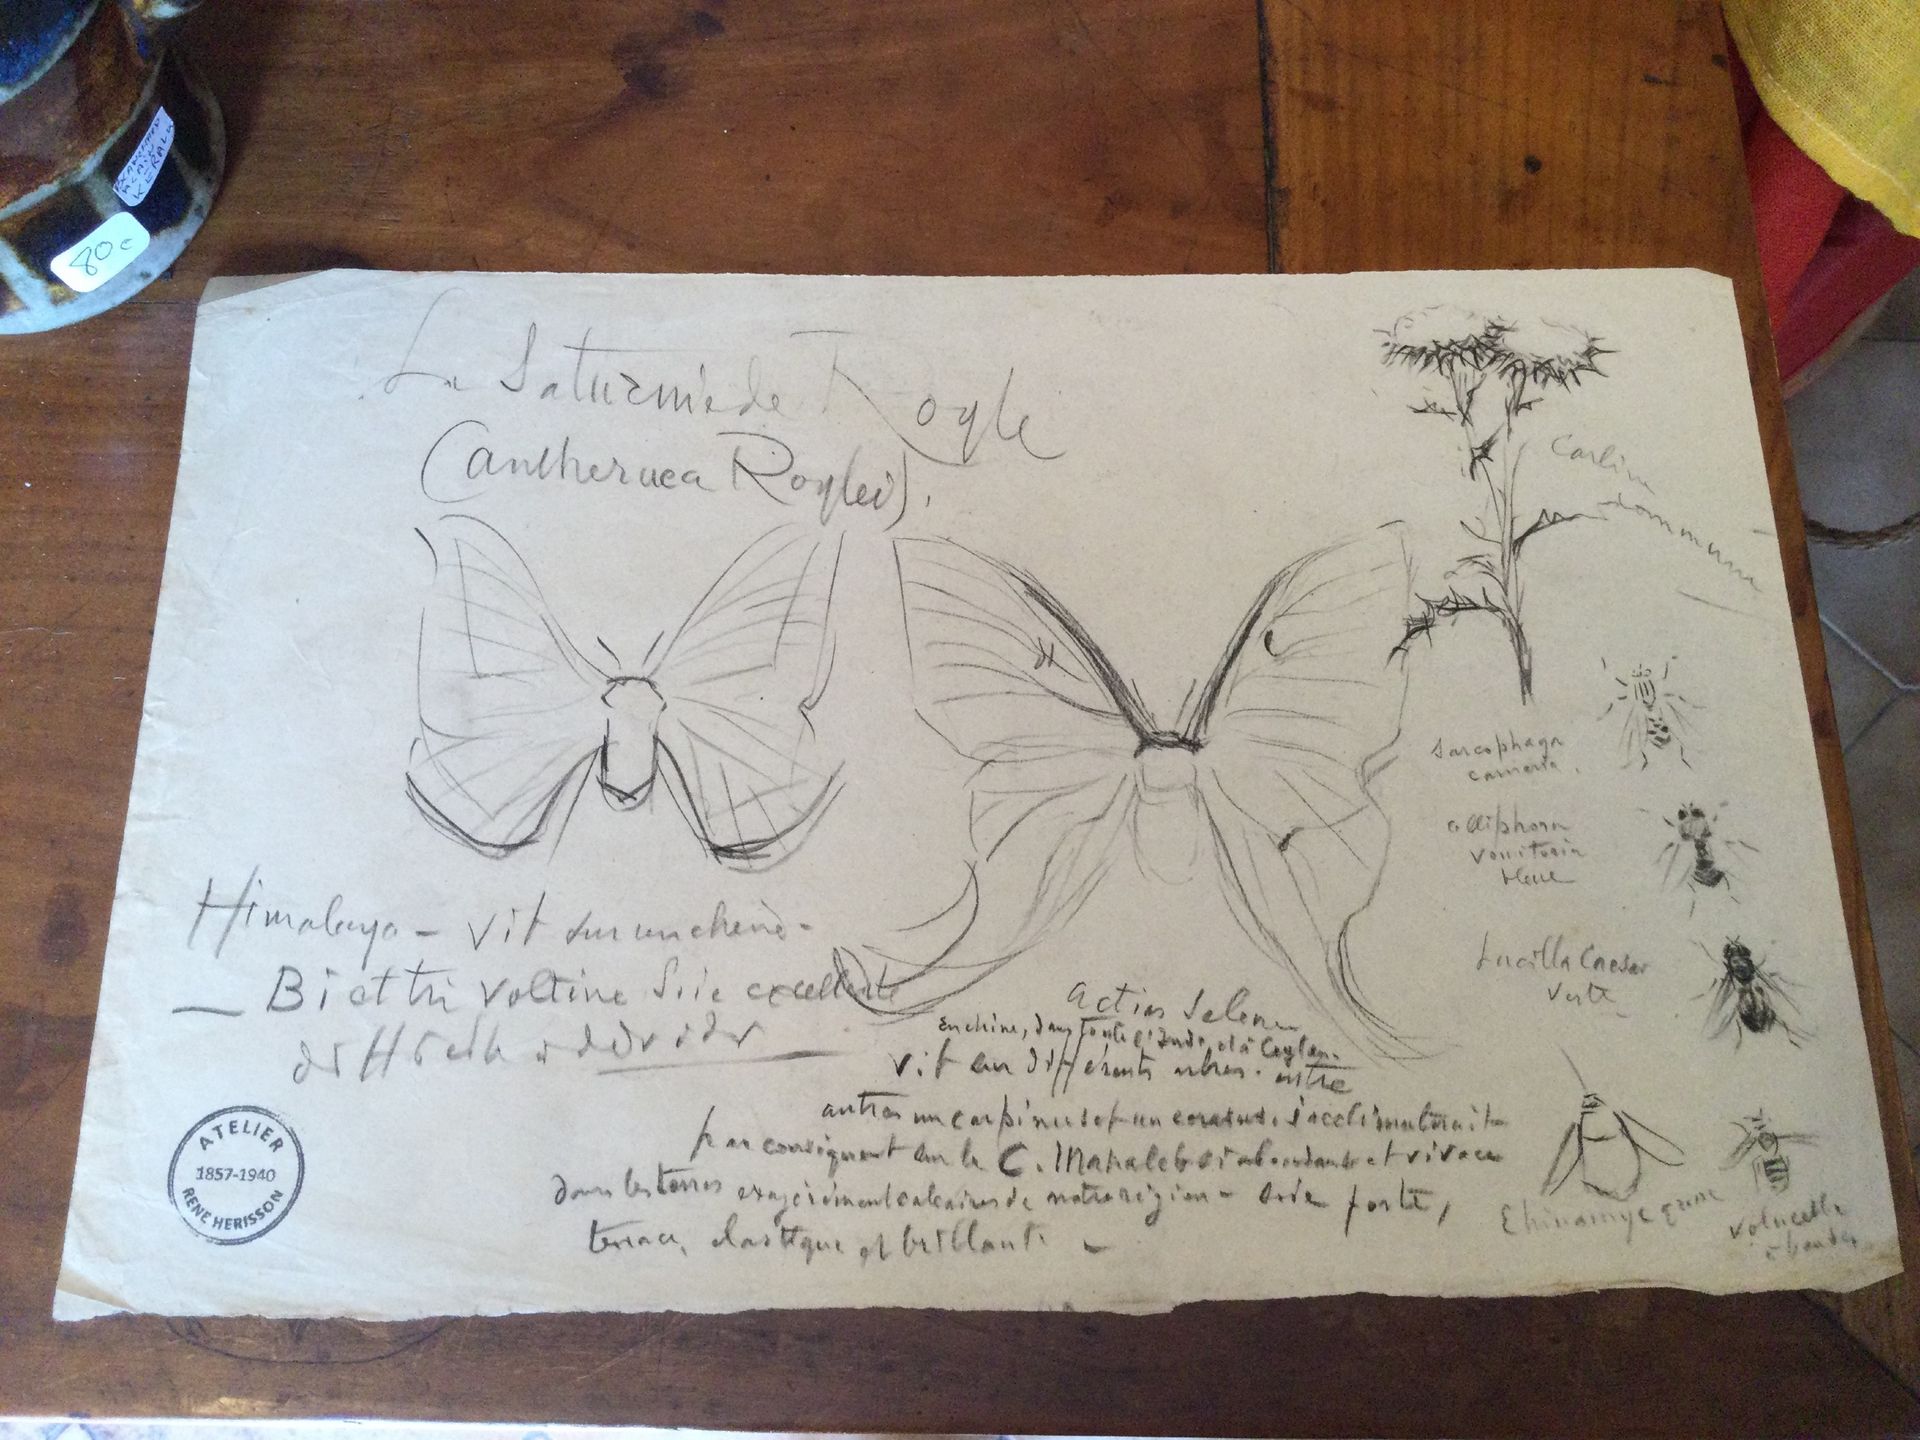 La Saturnie de Royle
(antheruea Roylei).
Carlina
commun
sarcophaga
carnaria.
calliphora
vomitoria
bleue
Lucilla Caesar
verte
Himalaya - vit sur un chêne -
Bi et tri voltine Soie excellente
difficile à dévider
actias Selene
En chine, dans toute l'Inde, et à Ceylan.
vit sur différents arbres. entre
autres un carpinus et un cerasus. s'acclimaterait
par conséquent sur le C. Mahaleb si abondant et vivace
dans les terres exagérément calcaires de notre région - soie forte,
tenace, élastique et brillante -
Echinomye
volucelle
à bandes
ATELIER
1857-1940
RENE HERISSON
KERALU
80 €